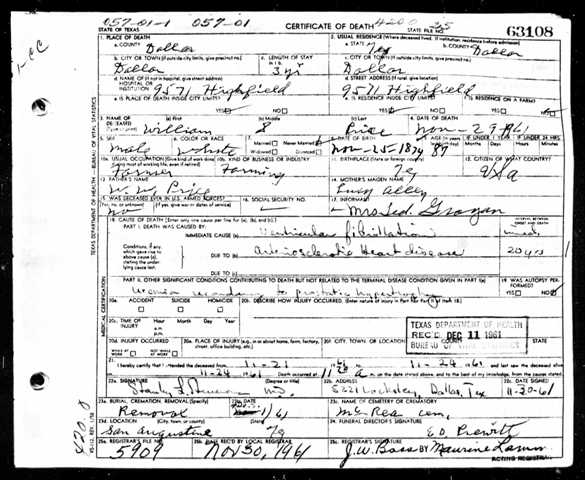 057-01-1 057-01
STATE OF TEXAS CERTIFICATE OF DEATH 4200 STATE FILE NO. 63108
1. PLACE OF DEATH 2. USUAL RESIDENCE (Where deceased lived. If institution: residence before admission)
a. COUNTY Dallas a. STATE Tex b. COUNTY Dallas
b. CITY OR TOWN (If outside city limits, give precinct no.) c. LENGTH OF STAY c. CITY OR TOWN (If outside city limits, give precinct no.)
Dallas 3 yr Dallas
d. NAME OF (If not in hospital, give street address) HOSPITAL OR INSTITUTION 9571 Highfield d. STREET ADDRESS (If rural, give location) 9571 Highfield
e. IS PLACE OF DEATH INSIDE CITY LIMITS? YES NO e. IS RESIDENCE INSIDE CITY LIMITS? YES NO f. IS RESIDENCE ON A FARM? YES NO
3. NAME OF DECEASED (Type or print) (a) First William (b) Middle (c) Last Price 4. DATE OF DEATH
5. SEX Male 6. COLOR OR RACE White 7. Married Never Married Widowed Divorced 8. DATE OF BIRTH Nov-25-1874 87 Months Days Hours Min.
10a. USUAL OCCUPATION (Give kind of work done during most of working life, even if retired) Farmer 10b. KIND OF BUSINESS OR INDUSTRY Farming 11. BIRTHPLACE (State or foreign country) 12. CITIZEN OF WHAT COUNTRY? USA
13. FATHER'S NAME W. W. Price 14. MOTHER'S MAIDEN NAME Lucy Allen
15. WAS DECEASED EVER IN U.S. ARMED FORCES? (Yes, no, or unknown) (If yes, give war or dates of service) no 16. SOCIAL SECURITY NO. 17. INFORMANT Mrs. Ted. Grogan
18. CAUSE OF DEATH (Enter only one cause per line for (a), (b), and (c).) INTERVAL BETWEEN ONSET AND DEATH
PART I. DEATH WAS CAUSED BY:
IMMEDIATE CAUSE (a) Ventricular fibrillation
Conditions, if any, which gave rise to above cause (a), stating the underlying cause last. DUE TO (b) Arteriosclerotic Heart disease 20 yrs
DUE TO (c)
PART II. OTHER SIGNIFICANT CONDITIONS CONTRIBUTING TO DEATH BUT NOT RELATED TO THE TERMINAL DISEASE CONDITION GIVEN IN PART I(a) 19. WAS AUTOPSY PERFORMED? YES NO
Uremia secondary to prostatic hypertrophy
20a. ACCIDENT SUICIDE HOMICIDE 20b. DESCRIBE HOW INJURY OCCURRED.
20c. TIME OF INJURY Hour Month Day Year a.m. p.m.
TEXAS DEPARTMENT OF HEALTH
REC'D DEC 11 1961
BUREAU OF VITAL STATISTICS
20d. INJURY OCCURRED 20e. PLACE OF INJURY (e.g., in or about home, farm, factory, street, office building, etc.) 20f. CITY, TOWN, OR LOCATION COUNTY STATE
21. I hereby certify that I attended the deceased from 11-21 1961 to 11-24 1961
11-24 1961 Death occurred at m. on the date stated above, and to the best of my knowledge, from the causes stated.
22a. SIGNATURE M.D. 22b. ADDRESS Dallas, Tex 22c. DATE SIGNED 11-30-61
23a. BURIAL, CREMATION, REMOVAL (Specify) Removal 23b. DATE 23c. NAME OF CEMETERY OR CREMATORY McRea Cem.
23d. LOCATION (City, town, or county) (State) San Augustine 24. FUNERAL DIRECTOR'S SIGNATURE
25a. REGISTRAR'S FILE NO. 5909 25b. DATE REC'D BY LOCAL REGISTRAR Nov 30, 1961 25c. REGISTRAR'S SIGNATURE J.W. Bass By Maurine Lamm
ACTING REGISTRAR